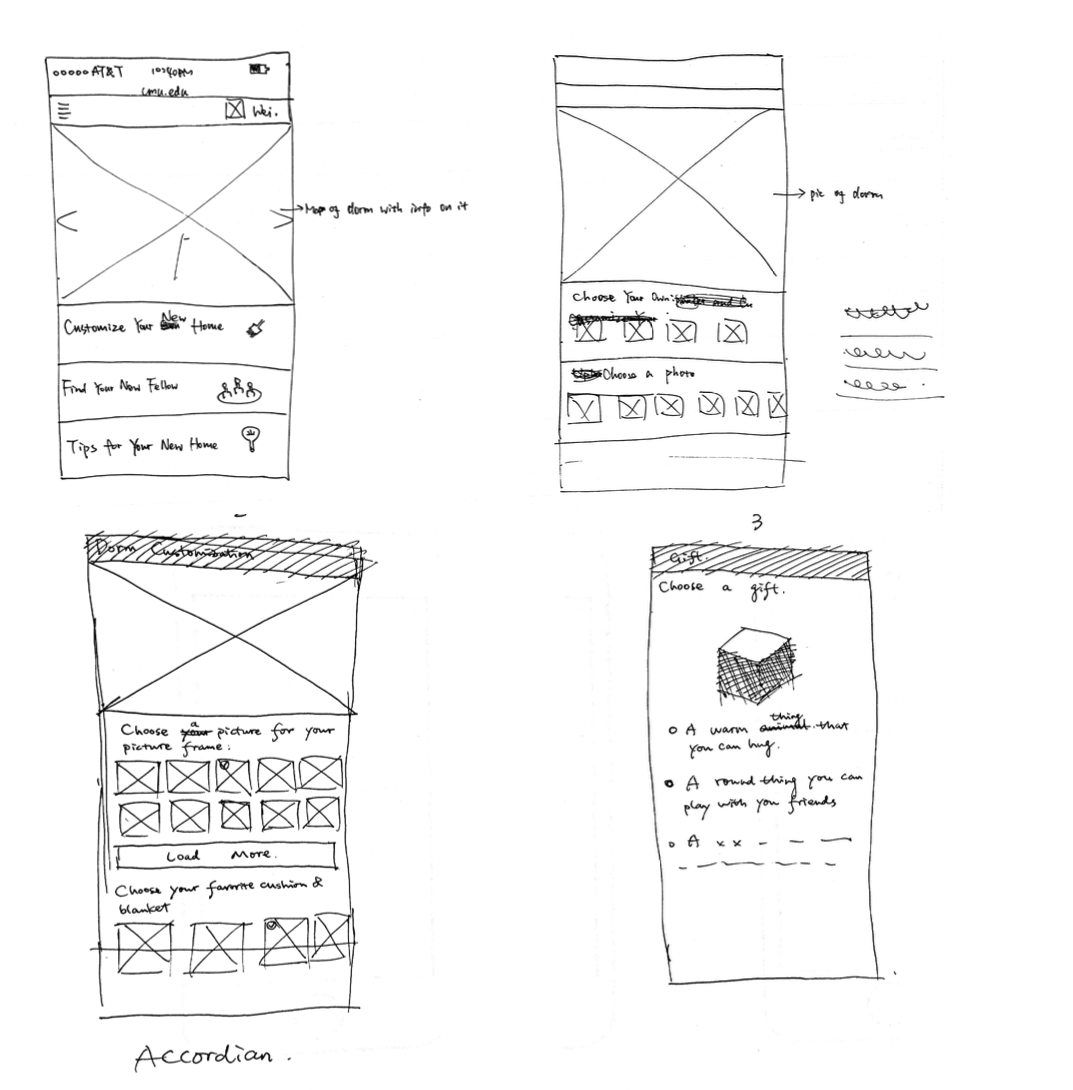 AT&T 10:40PM
cmu.edu
Wei.
Map of dorm with info on it
Customize Your New Home
Find Your New Fellow
Tips for Your New Home
pic of dorm
Choose Your Own
Choose a photo
3
Dorm Customization
Choose a picture for your
picture frame:
Load More.
Choose your favorite cushion &
blanket
Accordian.
Gift.
Choose a gift.
A warm thing that
you can hug.
A round thing you can
play with you friends
A x x